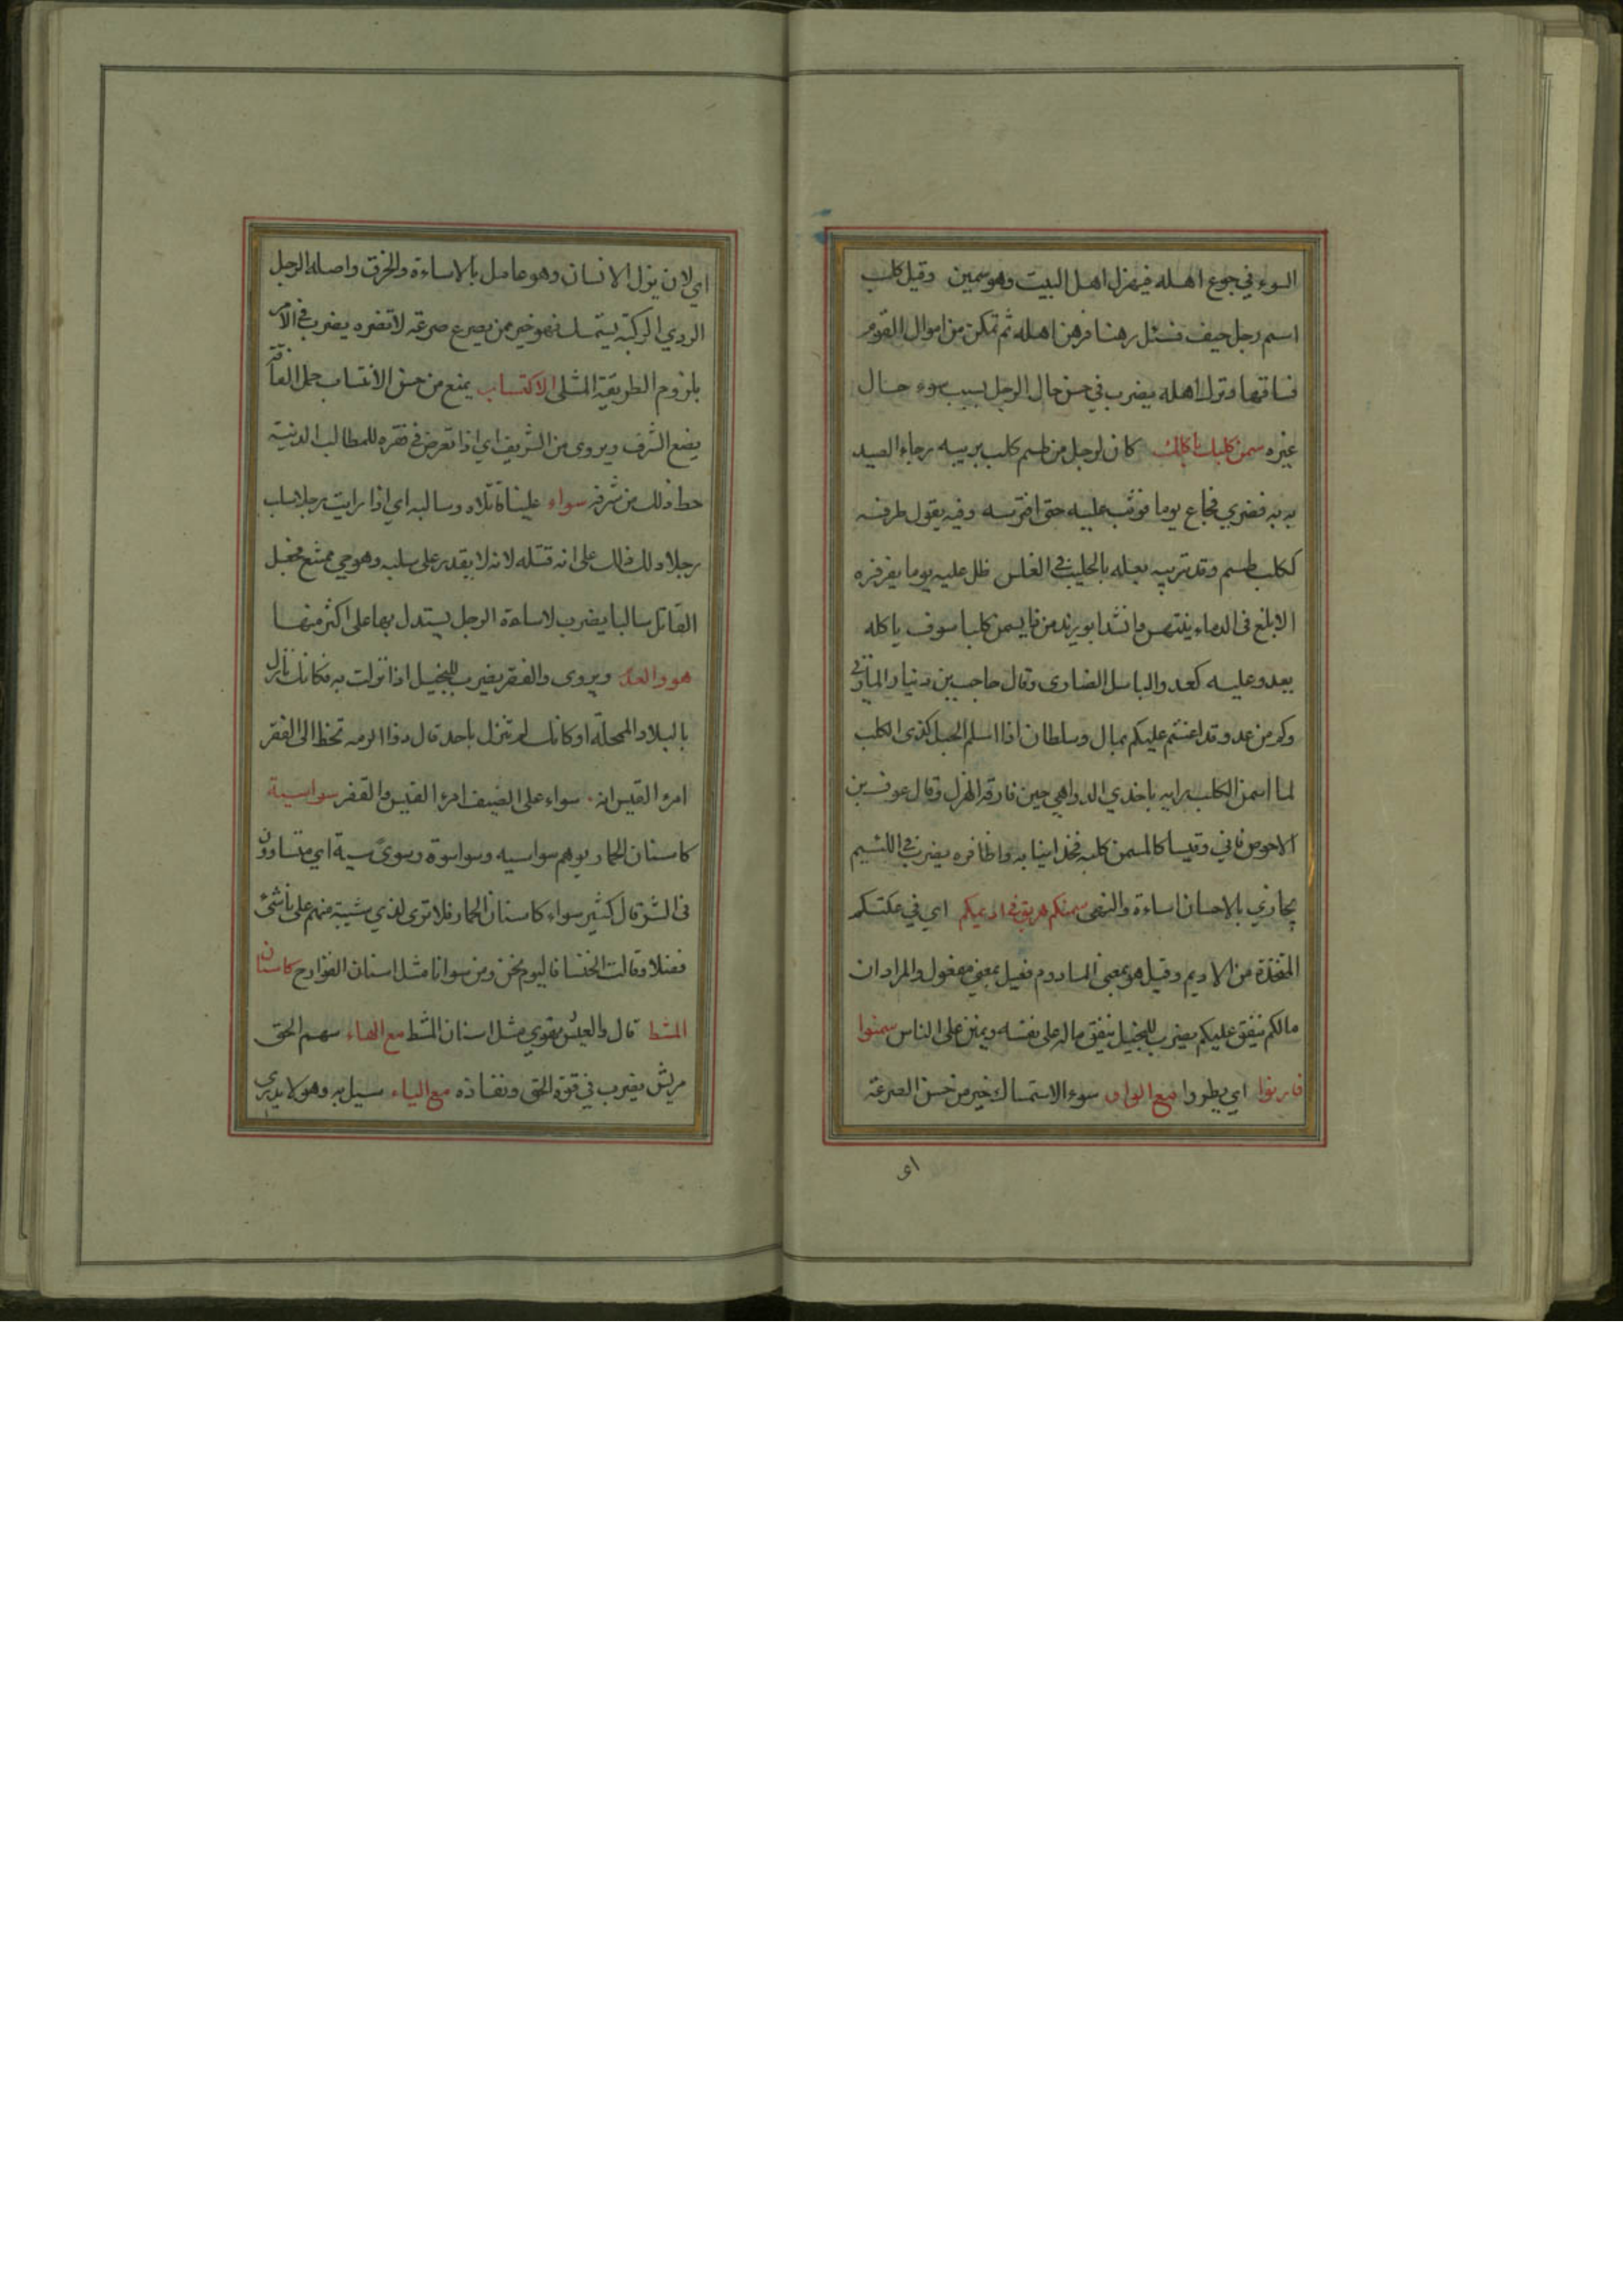 السوء في جوع اهله فيهزل اهل البيت وهو سمين وقيل كلب
اسم رجل خيف فسئل رهنا فرهن اهله ثم تمكن من اموال القوم
فساقها وترك اهله يضرب في حسن حال الرجل بسبب سوء حال
غيره سمن كلبك ياكلك كان لرجل من طسم كلب يربيه رجاء الصيد
به فضري فجاع يوما فوثب عليه حتى افترسه وفيه يقول طرفه
ككلب طسم وقد تربيه يعله بالحليب في الغلس ظل عليه يوما يفرفره
الا يلغ في الدماء ينتهس وانشد ابو زيد من ما يسمن كلبا سوف ياكله
يعدو عليه كعدو الباسل الضاري وقال حاجب بن دينار المازني
وكم من عدو قد اعنتم عليكم بمال وسلطان اذا اسلم الحبل كذى الكلب
لما اسمن الكلب رابه باحدي الدواهي حين فارقه الهزل وقال عوف بن
الاحوص فاني وقيسا كالمسمن كلبه فخد انيابه واظافره يضرب في اللئيم
يجازي بالاحسان اساءة والنعمى سمنكم هريق في اديمكم اي في عكتكم
المتخذة من الاديم وقيل هو بمعنى المادوم فعيل بمعني مفعول والمراد ان
مالكم ينفق عليكم يضرب للبخيل ينفق ماله على نفسه ويمتن على الناس سمنوا
فارنوا اي بطروا مع الواو سوء الاستمساك خير من حسن الصرعة
اى
اي لان يزل الانسان وهو عامل بالاساءة والخرق واصله الرجل
الردي الركبة يتمسك فهو خير ممن يصرع صرعة لا تضره يضرب في الامر
بلزوم الطريقة المثلى الاكتساب يمنع من حسن الانتساب حمل الفاقة
يضع الشرف ويروى من الشريف اي اذا تعرض في فقره للمطالب الدنية
حط ذلك من شرفه سواء علينا قاتلاه وسالبه اي اذا رايت رجلا سلب
رجلا دلك ذلك على انه قتله لانه لا يقدر على سلبه وهو حي ممتنع فجعل
القاتل سالبا يضرب لاساءة الرجل يستدل بها على اكثر منها
هو والعدم ويروى والفقر يضرب للبخيل اذا نزلت به فكانك نازل
بالبلاد المحلة او كانك لم تنزل باحد قال ذو الرمه تخط الى الفقر
امرء القيس انه سواء على الضيف امرء القيس والفقر سواسية
كاسنان الحمار يو هم سواسيه وسواسوة وسوى سية اي متساوون
في الشر قال كثير سواء كاسنان الحمار فلا ترى لذي شيبة منهم على ناشئ
فضلا وقالت الخنسا فاليوم نحن ومن سوانا مثل اسنان القوارح كاسنان
المشط قال والعيش مقوي مثل اسنان المشط مع الهاء سهم الحق
مريش يضرب في قوة الحق ونفاذه مع الياء سيل به وهو لا يدري